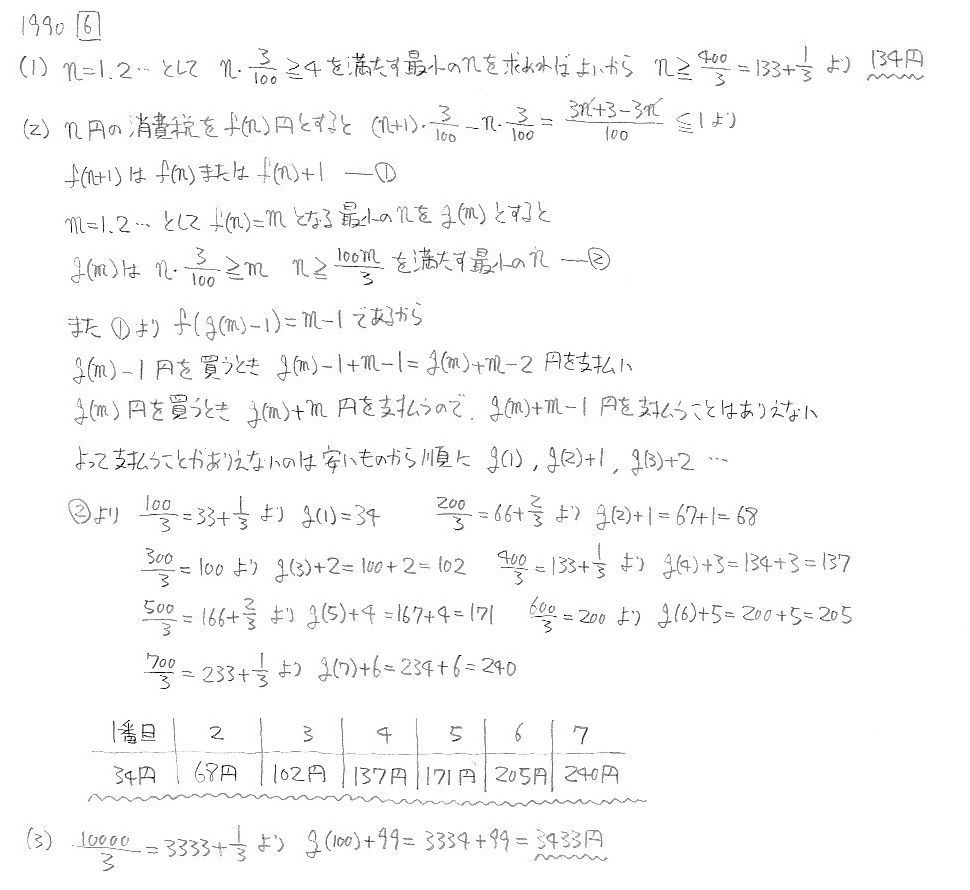 1990 6
(1) n=1.2… として n・3/100≧4を満たす最小のnを求めればよいから n≧400/3=133+1/3 より 134円
(2) n円の消費税をf(n)円とすると (n+1)・3/100-n・3/100=(3n+3-3n)/100≦1より
f(n+1)はf(n)またはf(n)+1 ―①
m=1.2… としてf(n)=mとなる最小のnをg(m)とすると
g(m)は n・3/100≧m n≧100m/3 を満たす最小のn ―②
また①より f(g(m)-1)=m-1であるから
g(m)-1円を買うとき g(m)-1+m-1=g(m)+m-2円を支払い
g(m)円を買うとき g(m)+m円を支払うので、g(m)+m-1円を支払うことはありえない
よって支払うことがありえないのは安いものから順に g(1), g(2)+1, g(3)+2 …
②より 100/3=33+1/3 より g(1)=34 200/3=66+2/3 より g(2)+1=67+1=68
300/3=100 より g(3)+2=100+2=102 400/3=133+1/3 より g(4)+3=134+3=137
500/3=166+2/3 より g(5)+4=167+4=171 600/3=200 より g(6)+5=200+5=205
700/3=233+1/3 より g(7)+6=234+6=240
1番目 2 3 4 5 6 7
34円 68円 102円 137円 171円 205円 240円
(3) 10000/3=3333+1/3 より g(100)+99=3334+99=3433円